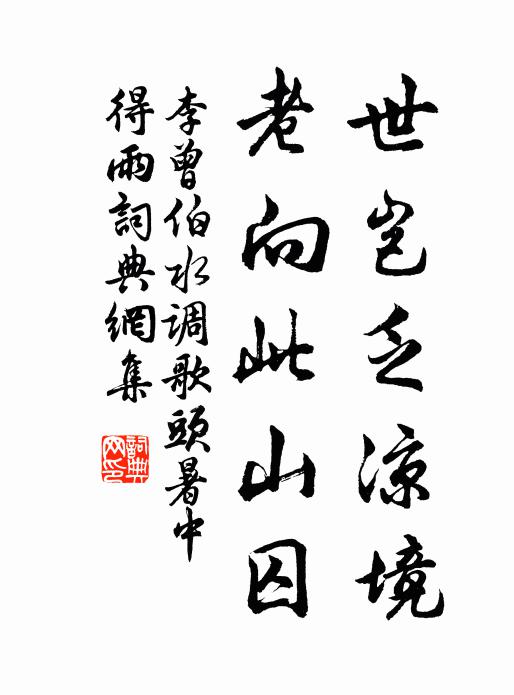 世岂乏凉境
老向此山囚
李曾伯水调歌頭暑中
得雨詞典網集
詞典
网印